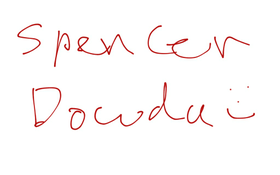 Spencer
Dowda :)